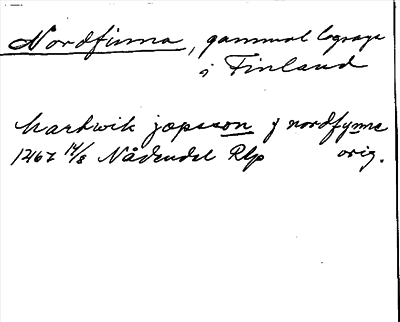 Nordfinna, gammal lagsaga
i Finland
hardwik jæpsson j nordfynne
1467 14/8 Nådendal Rlp orig.